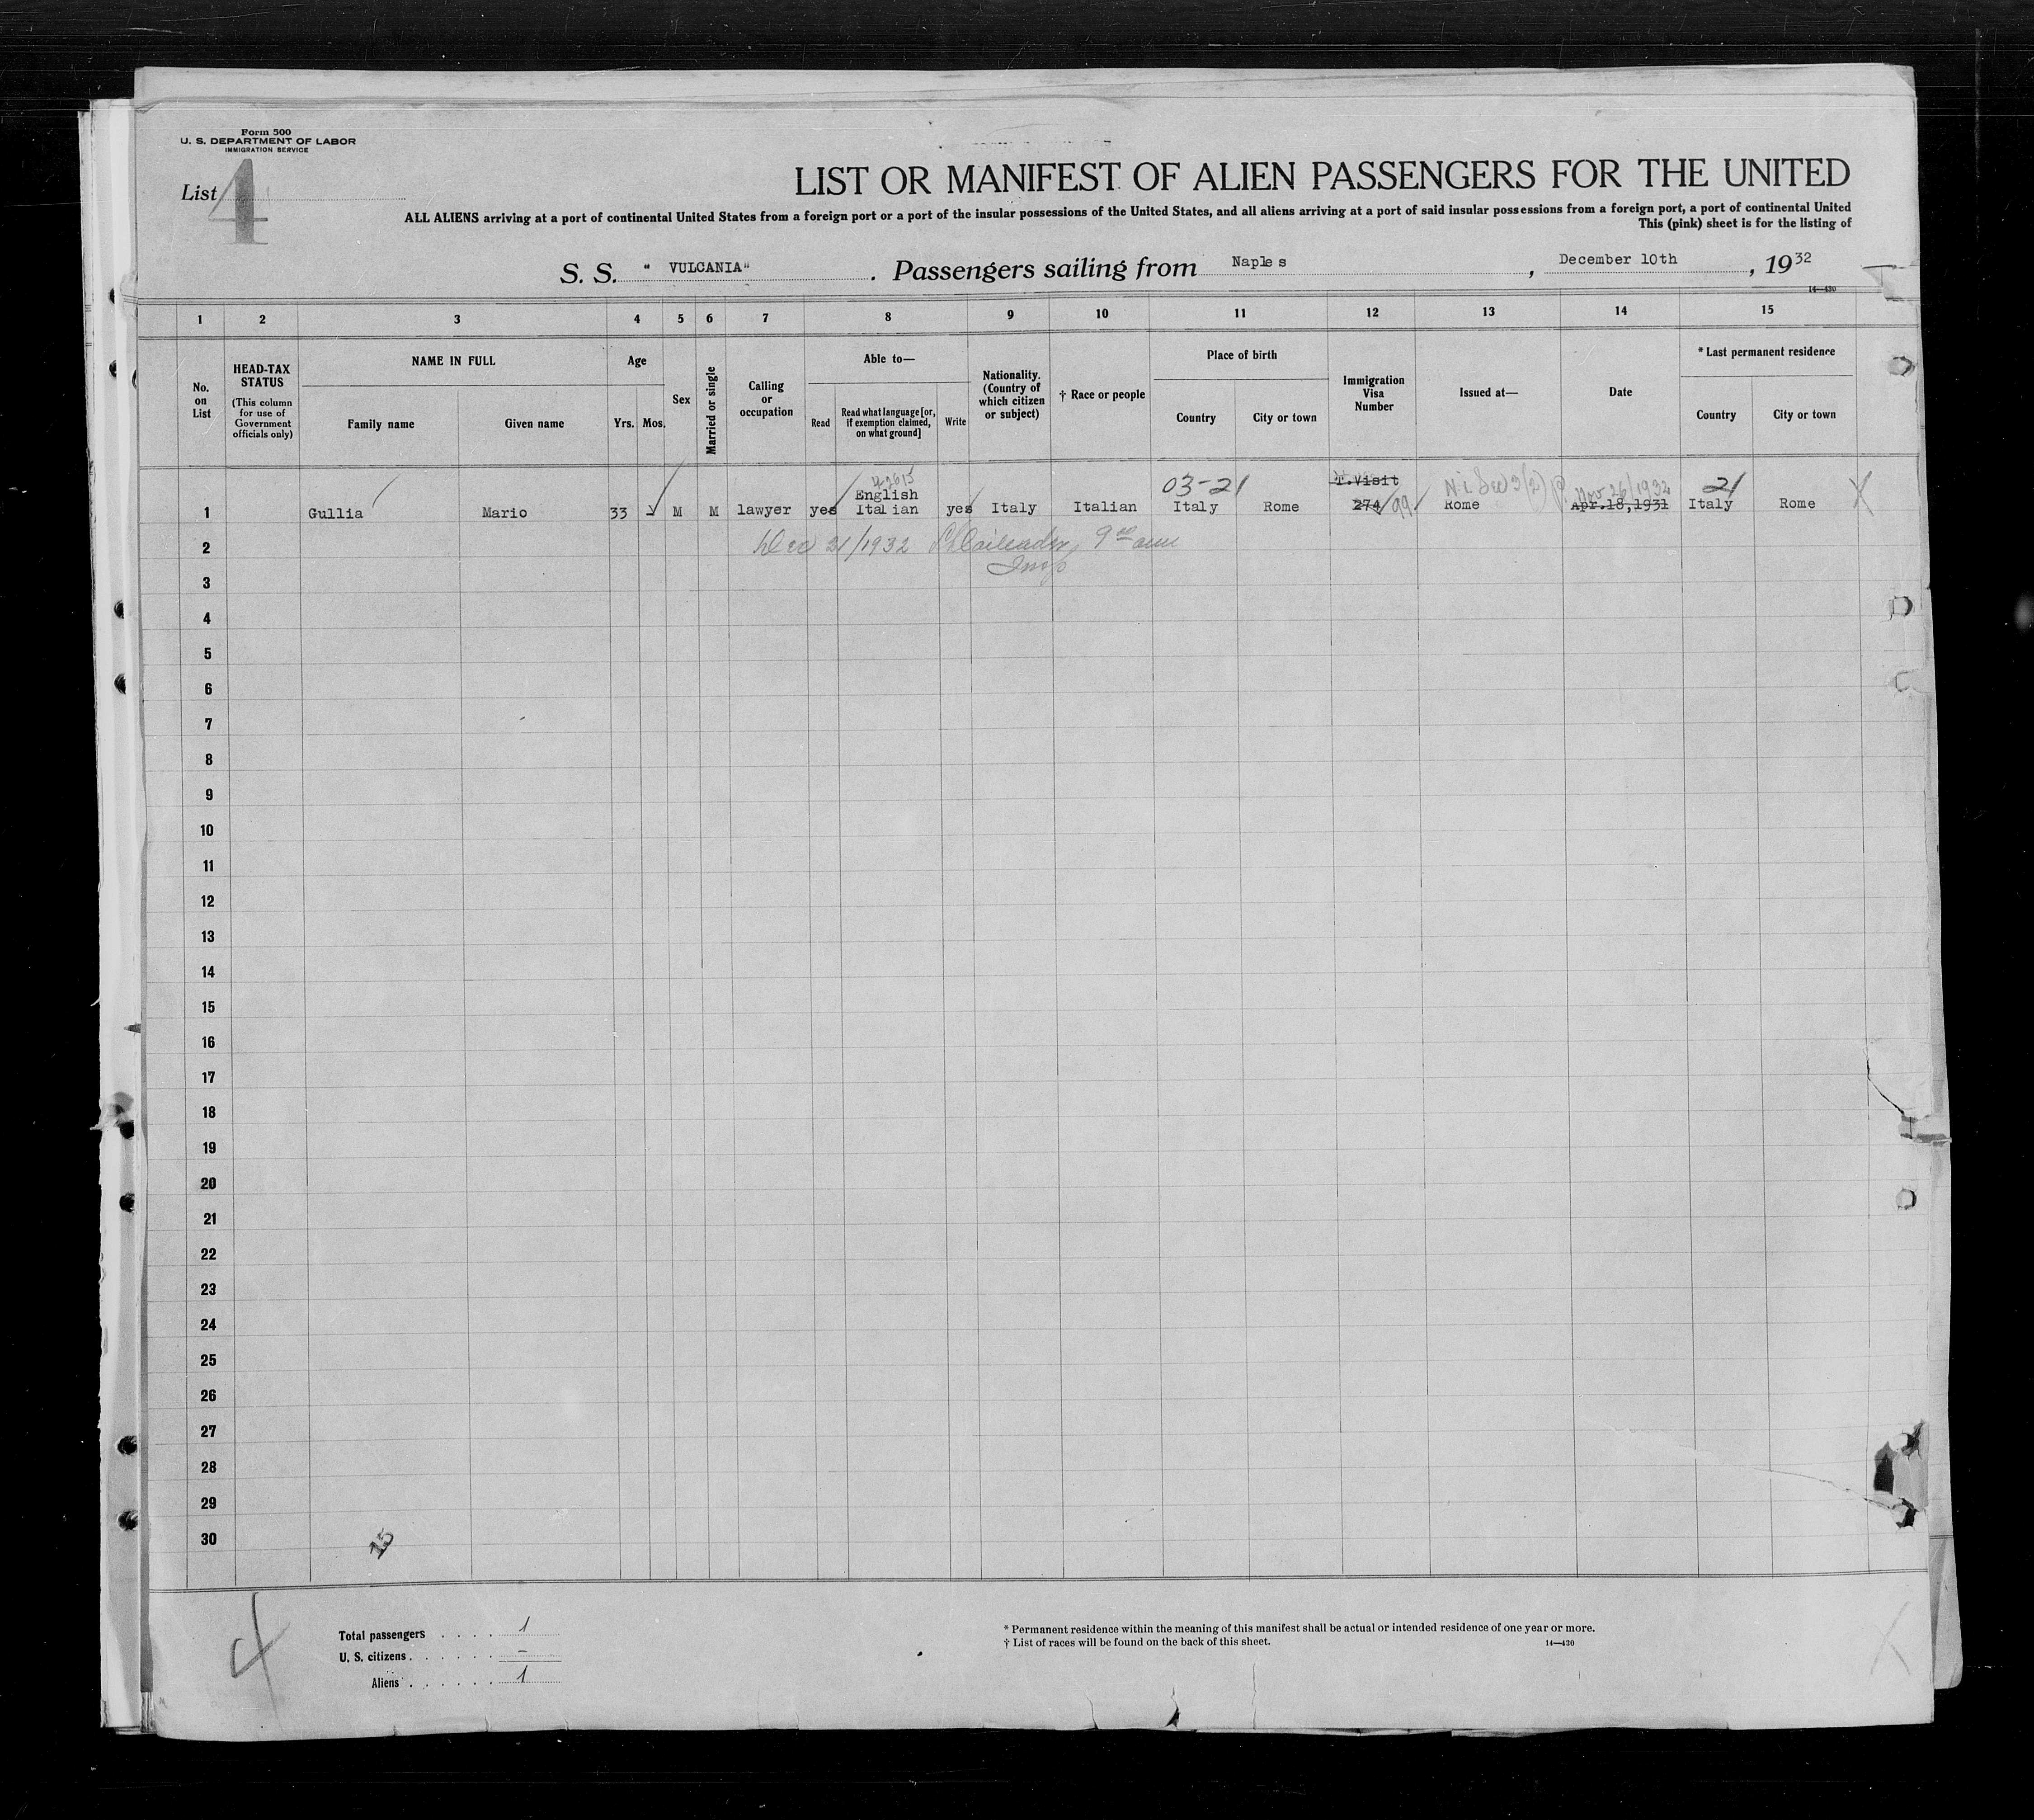 Form 500
U. S. DEPARTMENT OF LABOR
IMMIGRATION SERVICE
List 4
LIST OR MANIFEST OF ALIEN PASSENGERS FOR THE UNITED
ALL ALIENS arriving at a port of continental United States from a foreign port or a port of the insular possessions of the United States, and all aliens arriving at a port of said insular possessions from a foreign port, a port of continental United
This (pink) sheet is for the listing of
S. S. " VULCANIA" . Passengers sailing from Naples , December 10th , 19 32
14—430
1 2 3 4 5 6 7 8 9 10 11 12 13 14 15
No. on List
HEAD-TAX STATUS (This column for use of Government officials only)
NAME IN FULL
Family name Given name
Age
Yrs. Mos.
Sex
Married or single
Calling or occupation
Able to—
Read Read what language [or, if exemption claimed, on what ground] Write
Nationality. (Country of which citizen or subject)
† Race or people
Place of birth
Country City or town
Immigration Visa Number
Issued at—
Date
* Last permanent residence
Country City or town
03-21 T.Visit Nov 26/1932 21
English
1 Gullia Mario 33 - M M lawyer yes Italian yes Italy Italian Italy Rome 274 99 Rome Apr.18,1931 Italy Rome X
2 Dec 21/1932
Insp
3
4
5
6
7
8
9
10
11
12
13
14
15
16
17
18
19
20
21
22
23
24
25
26
27
28
29
30
4
Total passengers . . . . 1
U. S. citizens . . . . . . –
Aliens . . . . . . 1
* Permanent residence within the meaning of this manifest shall be actual or intended residence of one year or more.
† List of races will be found on the back of this sheet.
14—430
X